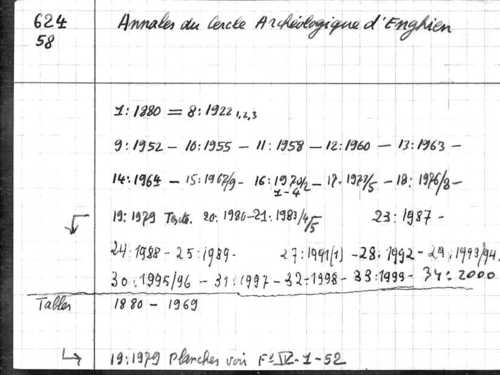 624 Annales du Cercle Archéologique d'Enghien
58
1:1880 = 8:1922 1,2,3
9:1952 - 10:1955 - 11:1958 - 12:1960 - 13:1963 -
14:1964 - 15:1967/9 - 16:1970/2 - 17:1973/5 - 18:1976/8 -
1-4
19:1979 Texte. 20:1980-21:1983/4/5 23:1987 -
24:1988 - 25:1989- 27:1991(1) - 28:1992 - 29:1993/94.
30:1995/96 - 31:1997 - 32:1998 - 33:1999 - 34:2000
Tables 1880 - 1969
19:1979 Planches voir F° IV-1-52